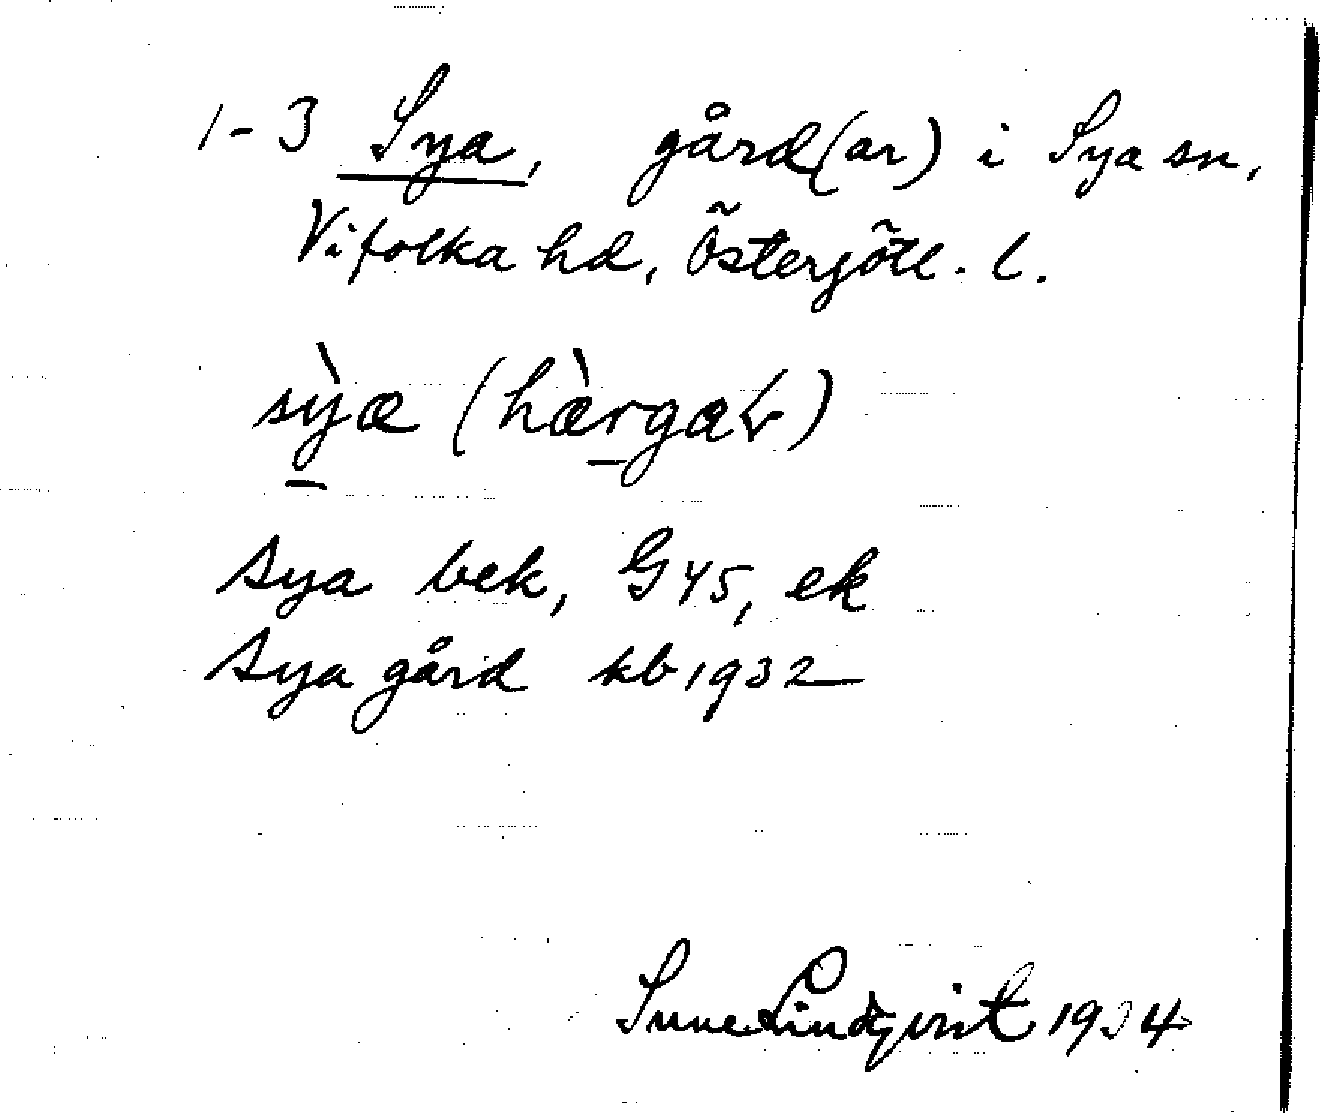 1-3 Sya, gård(ar) i Sya sn,
Vifolka hd, Östergötl. l.
sỳæ (hær̀gaṙ)
Sya bek, G45, ek
Sya gård kb 1932
Sune Lindqvist 1934